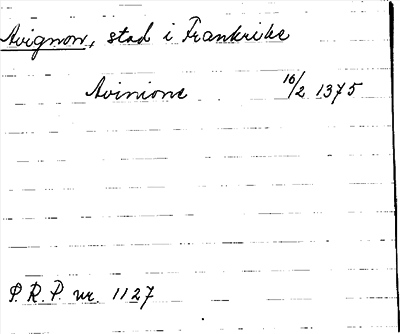 Avignon, stad i Frankrike
Avinione 16/2 1375
P.R.P. nr. 1127